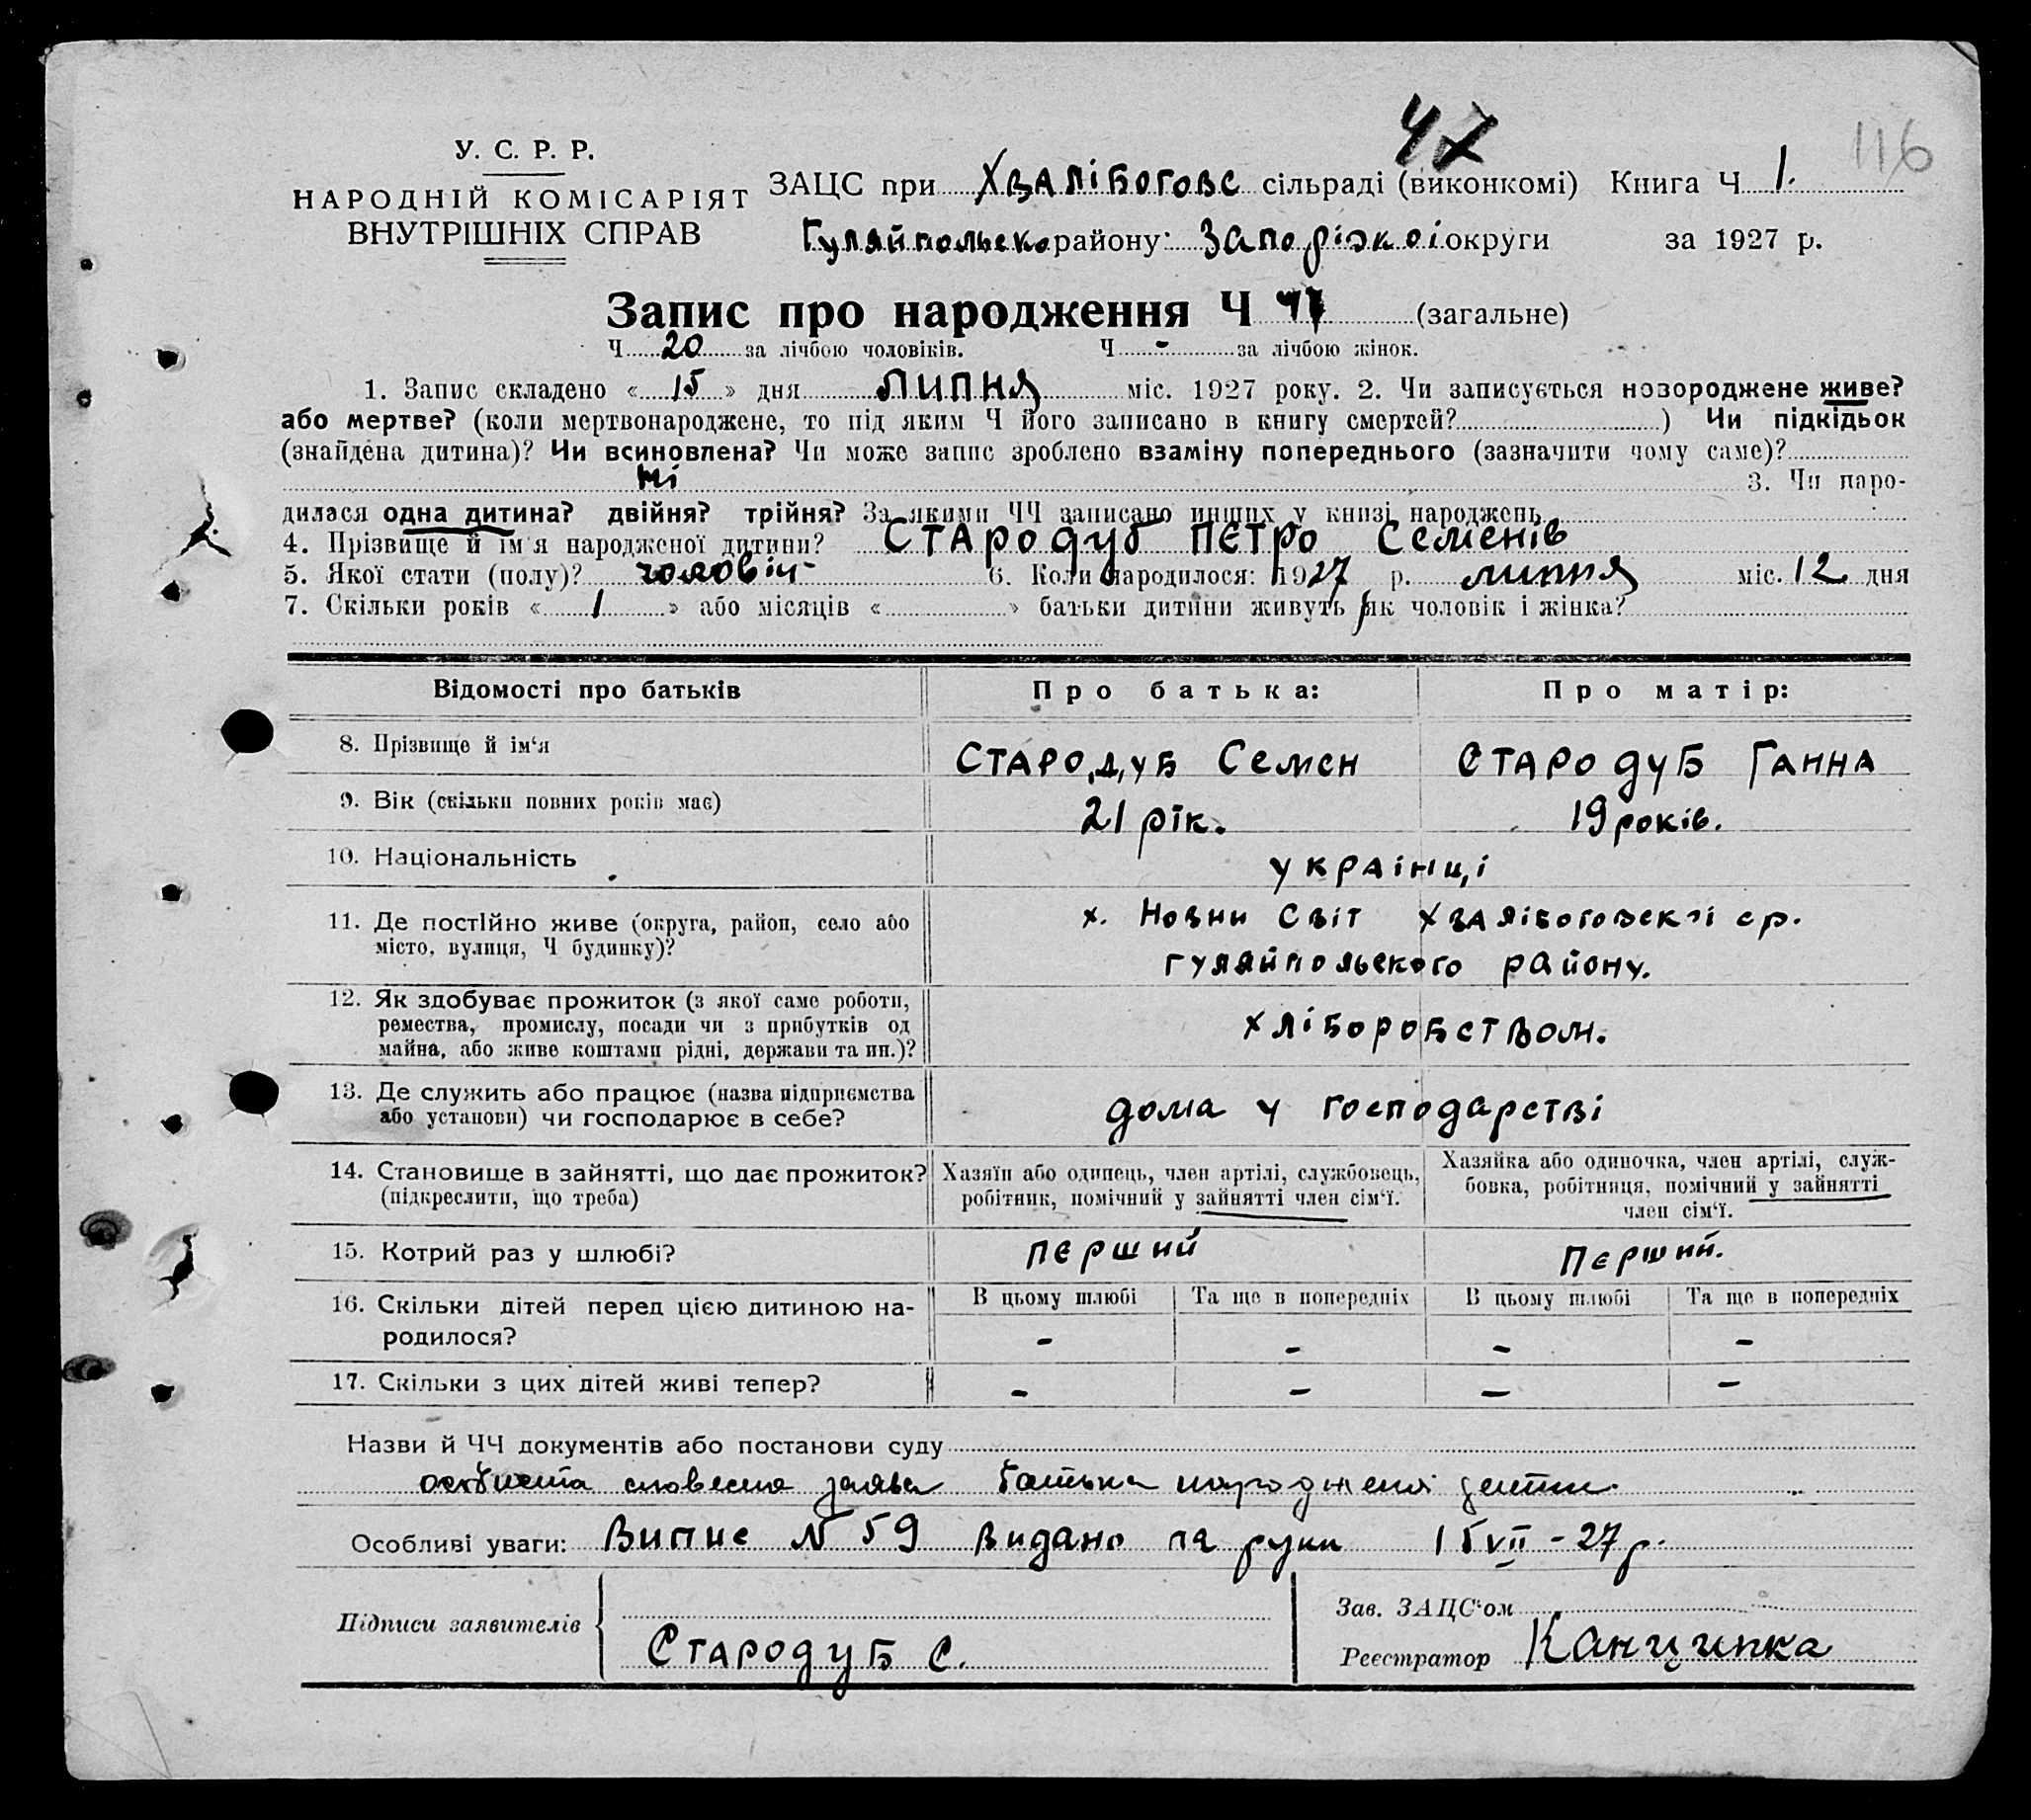 47
116
У. С. Р. Р.
НАРОДНІЙ КОМІСАРІЯТ
ВНУТРІШНІХ СПРАВ
ЗАЦС при Хвалібоговс сільраді (виконкомі) Книга Ч 1.
Гуляйпольско району Запорізкоі округи за 1927 р.
Запис про народження Ч (загальне)
Ч 20 за лічбою чоловіків. Ч - за лічбою жінок.
1. Запис складено « 15 » дня липня міс. 1927 року. 2. Чи записується новороджене живе?
або мертве? (коли мертвонароджене, то під яким Ч його записано в книгу смертей? ) Чи підкідьок
(знайдена дитина)? Чи всиновлена? Чи може запис зроблено взаміну попереднього (зазначити чому саме)?
Ні 3. Чи наро-
дилася одна дитина? двійня? трійня? За якими ЧЧ записано инших у книзі народжень
4. Прізвище й ім'я народженої дитини? Стародуб Петро Семенів
5. Якої стати (полу)? чоловіч 6. Коли народилося: 1927 р. липня міс. 12 дня
7. Скільки років « 1 » або місяців « » батьки дитини живуть як чоловік і жінка?
Відомості про батьків Про батька: Про матір:
8. Прізвище й ім‘я Стародуб Семен Стародуб Ганна
9. Вік (скільки повних років має) 21 рік. 19 років.
10. Національність українці
11. Де постійно живе (округа, район, село або місто, вулиця, Ч будинку)? х. Новий Світ Хвалібоговскоі ср.
гуляйпольского району.
12. Як здобуває прожиток (з якої саме роботи,
ремества, промислу, посади чи з прибутків од
майна, або живе коштами рідні, держави та ин.)? хліборобством.
13. Де служить або працює (назва підприємства
або установи) чи господарює в себе? дома у господарстві
14. Становище в зайнятті, що дає прожиток?
(підкреслити, що треба)
Хазяїн або одинець, член артілі, службовець,
робітник, помічний у зайнятті член сім‘ї.
Хазяйка або одиночка, член артілі, служ-
бовка, робітниця, помічний у зайнятті
член сім‘ї.
15. Котрий раз у шлюбі? перший Перший.
16. Скільки дітей перед цією дитиною на-
родилося?
В цьому шлюбі Та ще в попередніх В цьому шлюбі Та ще в попередніх
- - - -
17. Скільки з цих дітей живі тепер? - - - -
Назви й ЧЧ документів або постанови суду
особиста словесна заява батька народженоі дитини.
Особливі уваги: Випис N 59 видано на руки 15 VII - 27 р.
Підписи заявителів Стародуб С.
Зав. ЗАЦС‘ом
Реєстратор Канципка